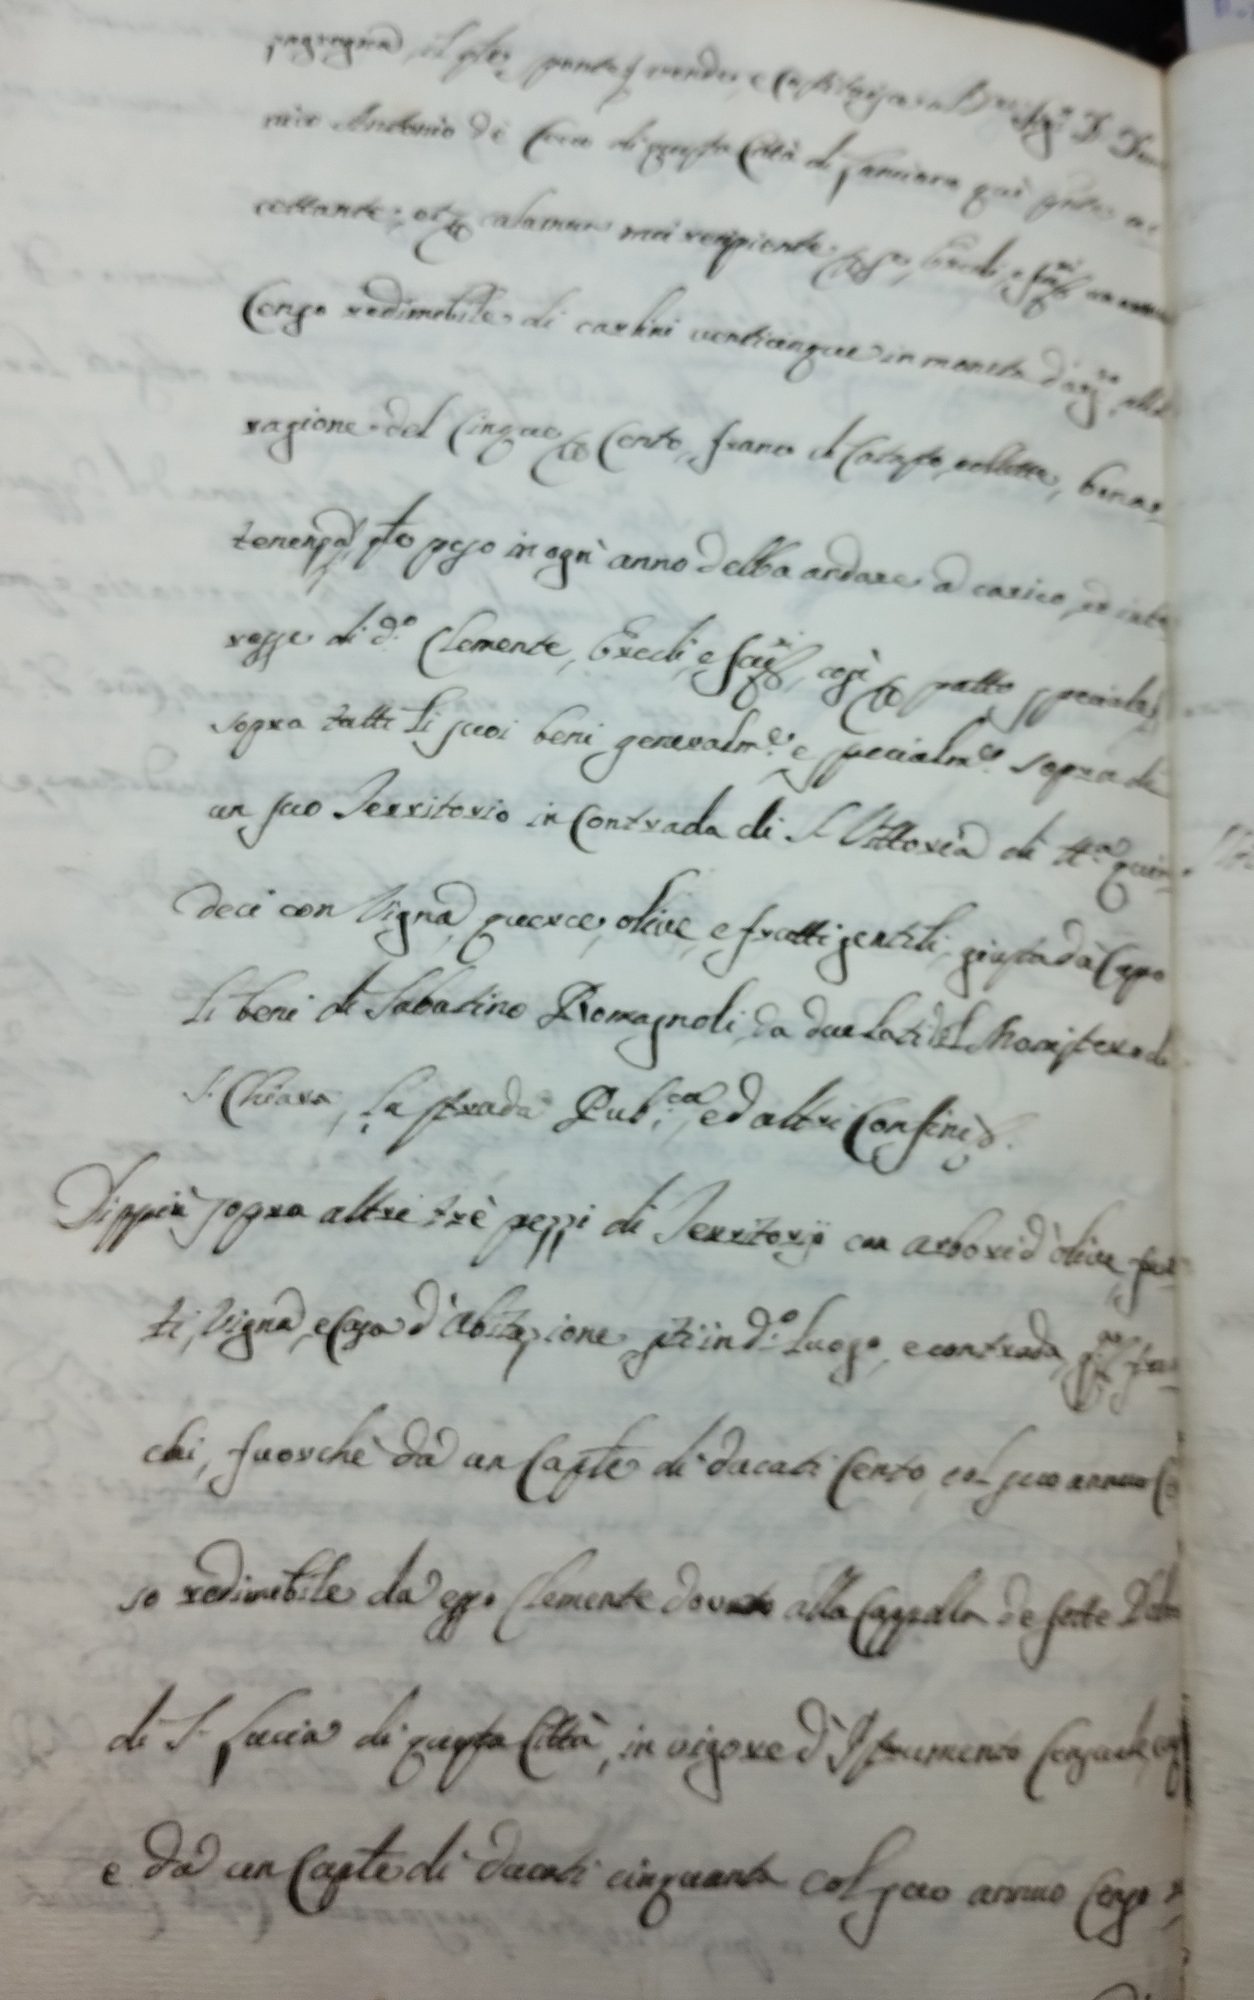 il pte vende, e Costituisce D.
nico Antonio de Cecco di questa Città di Lanciano quì pnte ac
cettante, et calamum mei recipiente Eredi, e annuo
Censo redimibile di carlini venticinque in moneta d'arg.to, alla
ragione del Cinque per Cento, franco di Catasto, collette, bonas
tenenza, qto peso in ogni anno debba andare a carico, ed inte
resse di d.o Clemente, Eredi, e così per patto speciale
sopra tutti li suoi beni generalm.e e specialm.e sopra di
un suo Territorio in Contrada di S. Vittoria di quin
deci con Vigna, querce, olive, e frutti gentili, giusta da Capo
li beni di Sabatino Romagnoli, da due lati del Monistero di
S. Chiara, la strada Pub.ca, ed altri Confini
Dippiù sopra altri trè pezzi di Territorij con arbori d'olive, frut
ti, Vigna, e Casa d'abitazione siti in d.o luogo, e contrada, fran
chi, fuorchè da un Caple di ducati Cento, col suo annuo Ce
so redimibile da esso Clemente dovuto alla Cappella de sette Dolo
di S. Lucia di questa Città, in vigore d'Istrumento Censuale,
e da un Caple di ducati cinquanta col suo annuo Censo